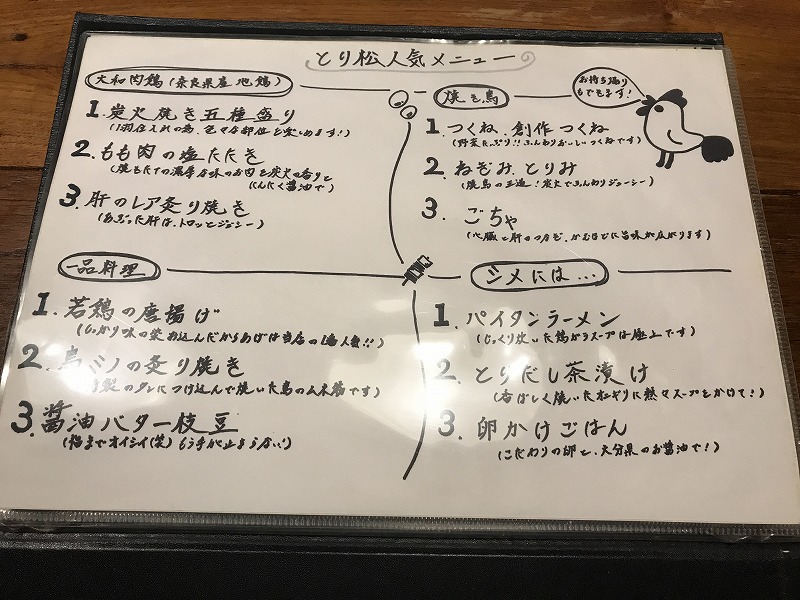 とり松人気メニュー
大和肉鶏(奈良県産地鶏)
1.炭火焼き五種盛り
(1羽仕入れの為、色々な部位を楽しめます!)
2.もも肉の塩たたき
(焼きたての濃厚な味のお肉を炭火の香りと
にんにく醤油で)
3.肝のレア炙り焼き
(あぶった肝は、トロッとジューシー)
焼き鳥
お持ち帰り
もできます!
1.つくね.創作つくね
(野菜たっぷり!!ふんわりおいしいつくねです)
2.ねぎみ.とりみ
(焼鳥の王道!炭火でふんわりジューシー)
3.ごちゃ
(心臓と肝のつなぎ、かむほどに旨味が広がります)
一品料理
1.若鶏の唐揚げ
(しっかり味の染み込んだからあげは当店の1番人気!!)
2.鳥ミノの炙り焼き
製のタレにつけ込んで焼いた鳥のムネ筋です)
3.醤油バター枝豆
(指までオイシイ(笑)もう手が止まらない!)
シメには...
1.パイタンラーメン
(じっくり炊いた鶏ガラスープは極上です)
2.とりだし茶漬け
(香ばしく焼いたオニギリに熱々スープをかけて!)
3.卵かけごはん
(こだわりの卵と、大分県のお醤油で!)